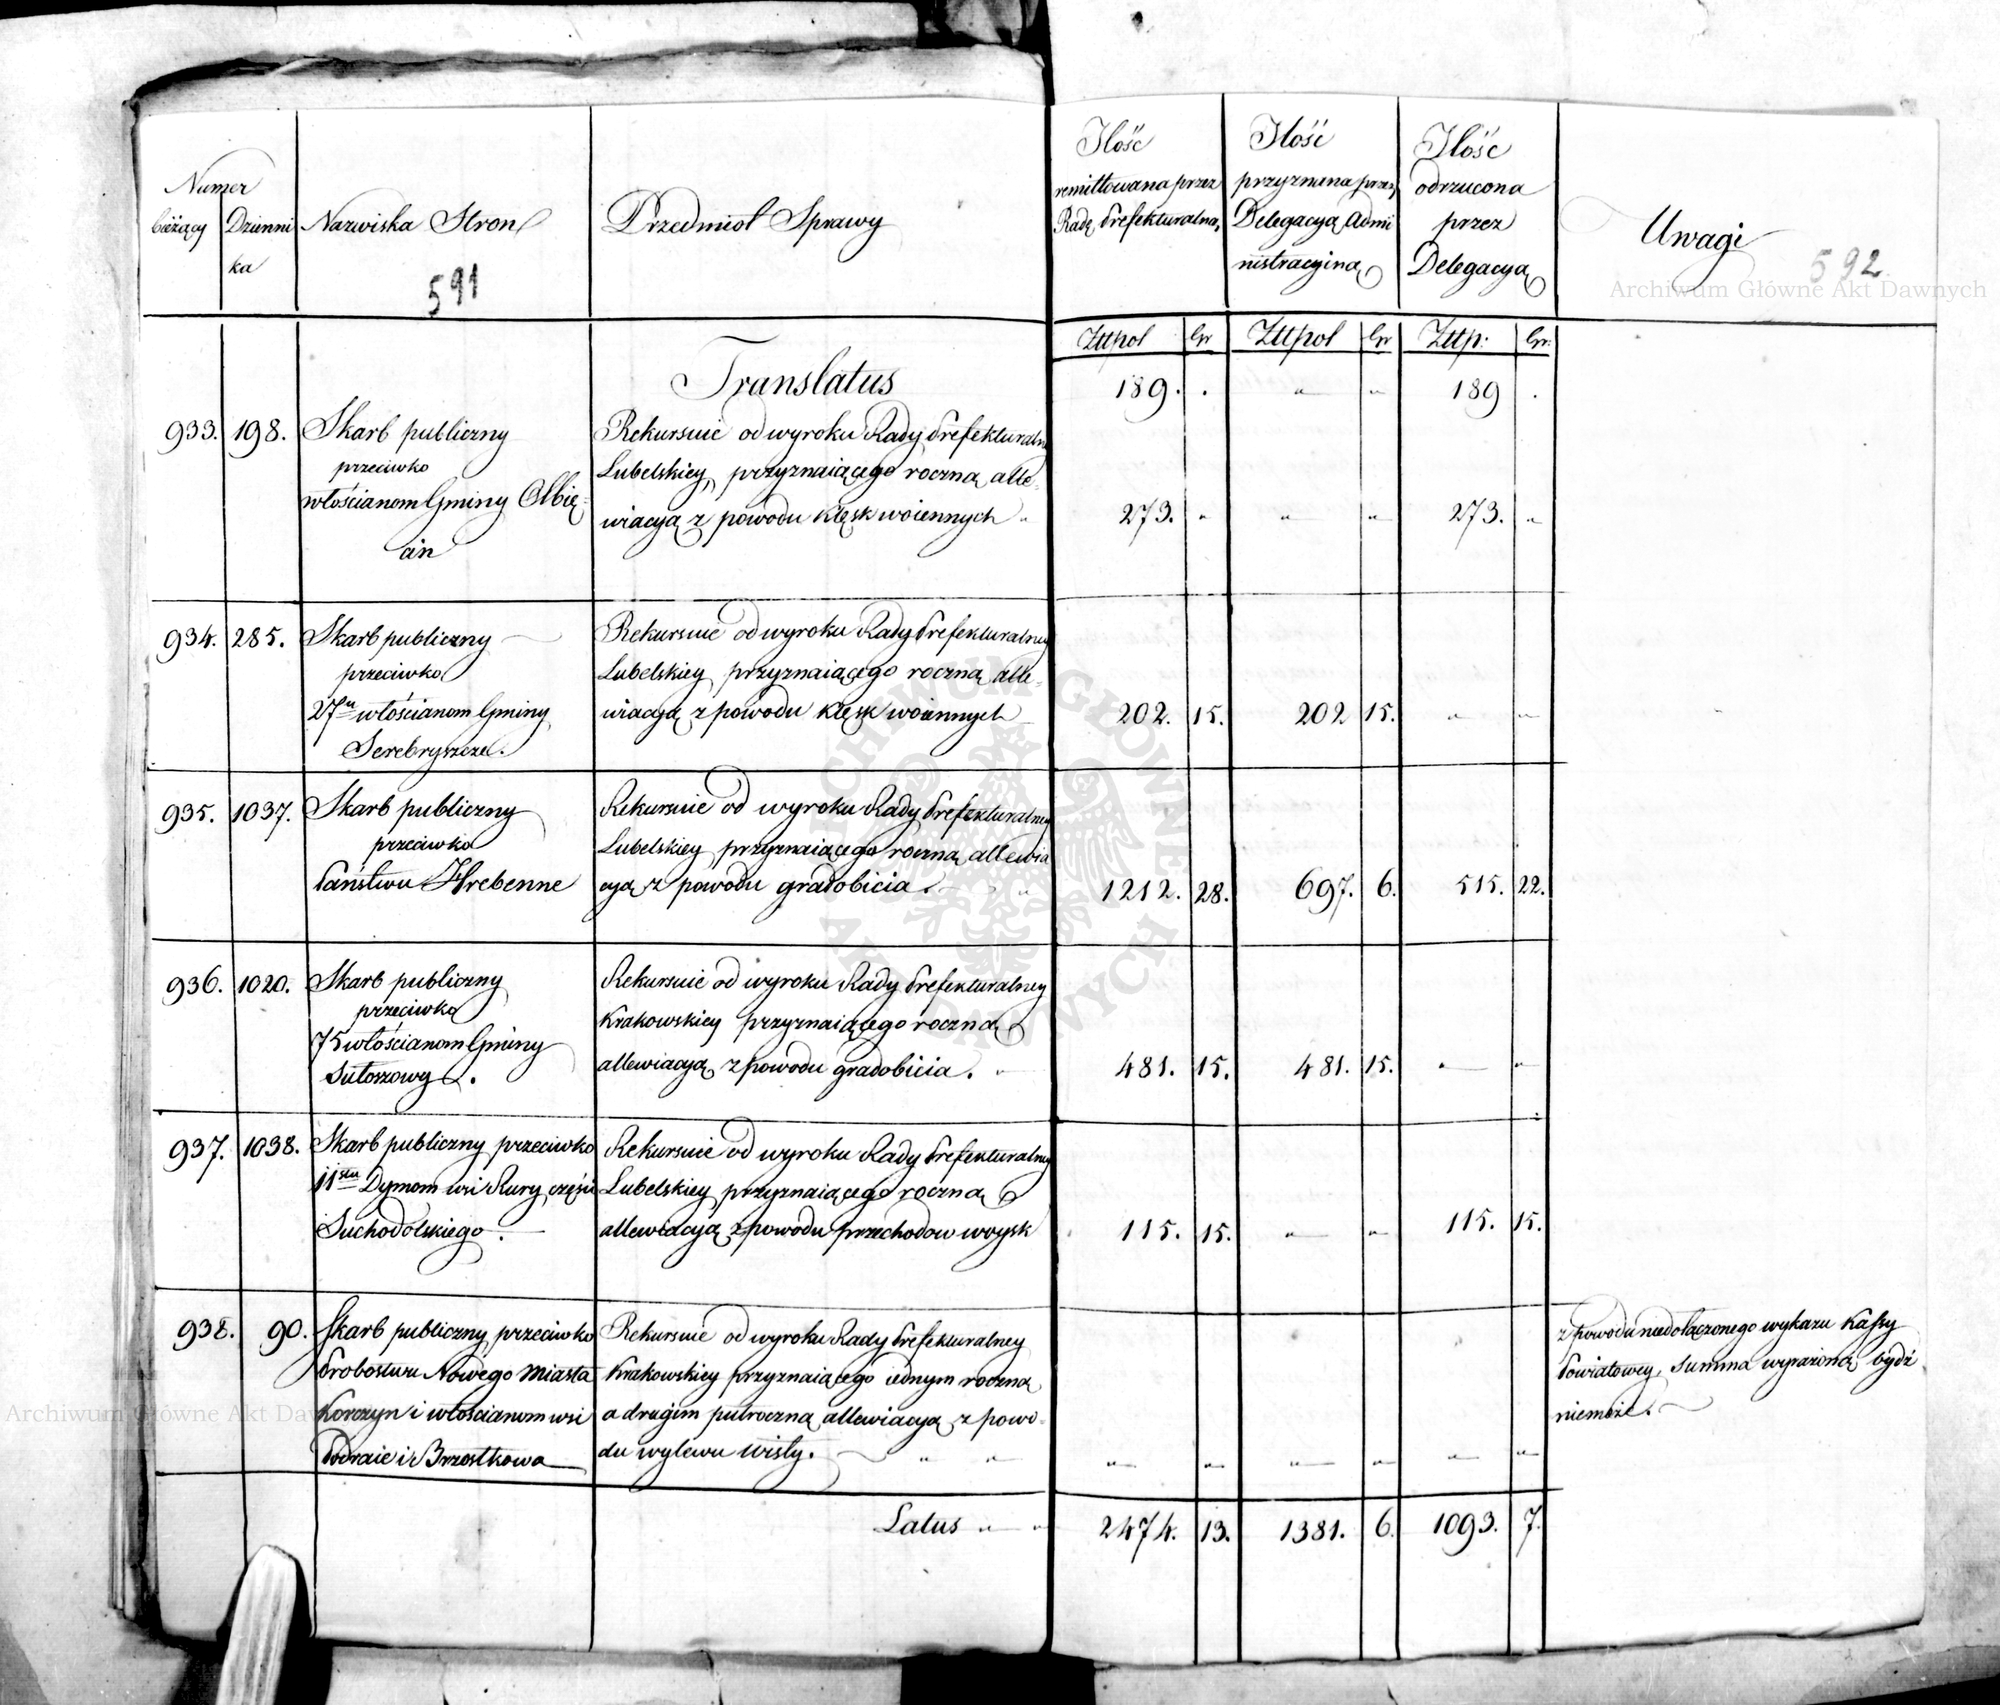 Numer
bieżący
Dzienni
ka
Nazwiska Stron
Przedmiot Sprawy
Ilość
remittowana przez
Radę Prefekturalną
Ilość
przyznana przez
Delegacyą Admi
nistracyiną
Ilość
odrzucona
przez
Delegacyą
Uwagi
591
592
Archiwum Główne Akt Dawnych
Zttpol Gr Zttpol Gr Zttp: Gr:
Translatus 189. . " " 189 .
933. 198. Skarb publiczny
przeciwko
włościanom Gminy Olbię=
cin
Rekursuie od wyroku Rady Prefekturalney
Lubelskiey, przyznaiącego roczną alle=
wiacyą z powodu klęsk woiennych "
273. " " " 273. "
934. 285. Skarb publiczny
przeciwko
27u włościanom Gminy
Serebryszcze.
Rekursuie od wyroku Rady Prefekturalney
Lubelskiey przyznaiącego roczną alle=
wiacyą z powodu klęsk woiennych
202. 15. 202 15. " "
935. 1037. Skarb publiczny
przeciwko
Państwu Hrebenne
Rekursuie od wyroku Rady Prefekturalney
Lubelskiey przyznaiącego roczną allewia
cyą z powodu gradobicia. "
1212. 28. 697. 6. 515. 22.
936. 1020. Skarb publiczny
przeciwko
75 włościanom Gminy
Sułoszowy.
Rekursuie od wyroku Rady Prefekturalney
Krakowskiey przyznaiącego roczną
allewiacyą z powodu gradobicia. "
481. 15. 481. 15. " "
937. 1038. Skarb publiczny przeciwko
11stu Dymom wsi Rury, części
Suchodolskiego.
Rekursuie od wyroku Rady Prefekturalney
Lubelskiey przyznaiącego roczną
allewiacyą z powodu przechodow woysk
115. 15. " " 115. 15.
938. 90. Skarb publiczny przeciwko
Probostwu Nowego Miasta
Korczyn i włościanom wsi
Podraie i Brzostkowa
Rekursuie od wyroku Rady Prefekturalney
Krakowskiey przyznaiącego iednym roczną
a drugim pułroczną allewiacyą z powo=
du wylewu Wisły. " "
" " " " " "
z powodu niedołączonego wykazu Kassy
Powiatowey, summa wyrażoną bydź
niemoże.
Archiwum Główne Akt Dawnych
Latus " " 2474. 13. 1381. 6. 1093. 7.
ARCHIWUM GŁÓWNE AKT DAWNYCH